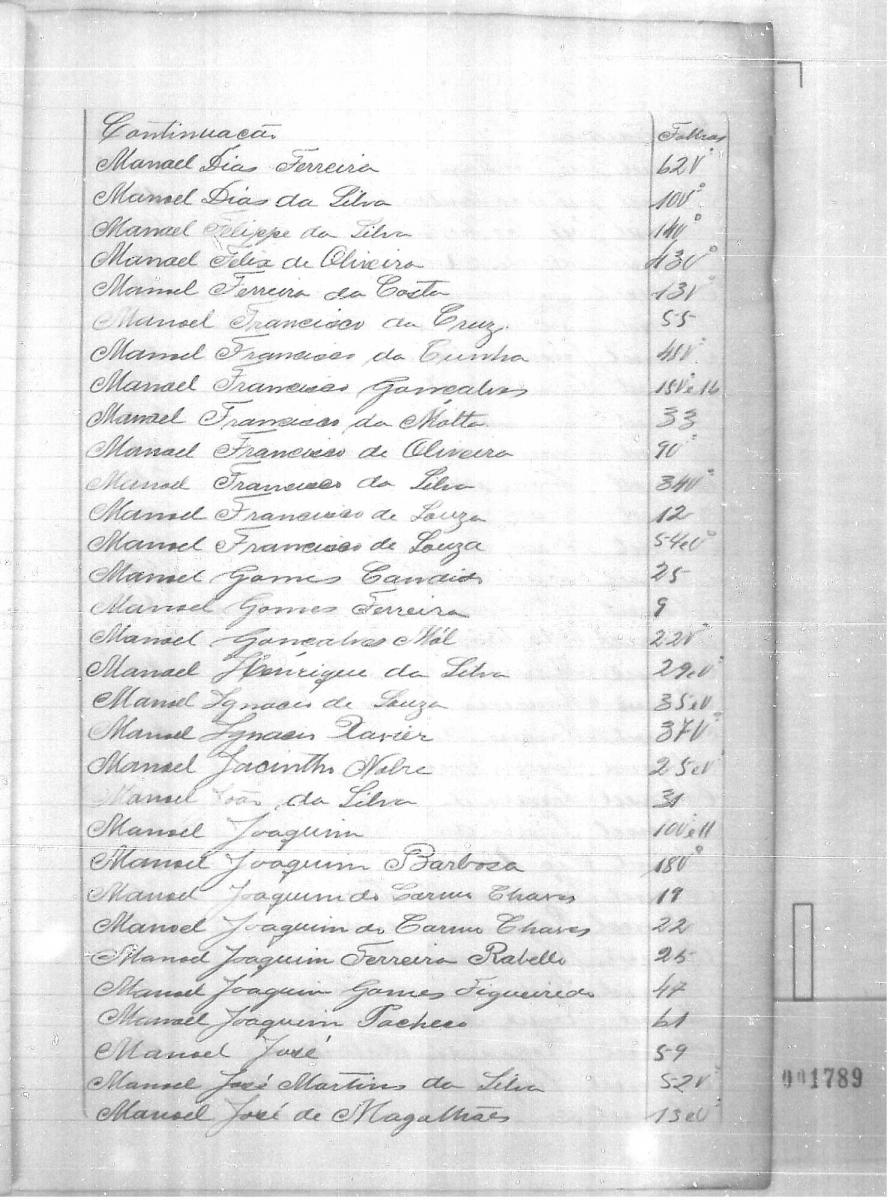 Continuação Folhas
Manoel Dias Ferreira 62Vº
Manoel Dias da Silva 10Vº
Manoel Felippe da Silva 14Vº
Manoel Felix de Oliveira 43Vº
Manoel Ferreira da Costa 13Vº
Manoel Francisco da Cruz. 55
Manoel Francisco da Cunha 45Vº
Manoel Francisco Gonçalves 15Vº e 16
Manoel Francisco da Motta 33
Manoel Francisco de Oliveira 9Vº
Manoel Francisco da Silva 34Vº
Manoel Francisco de Souza 12
Manoel Francisco de Souza 54 e Vº
Manoel Gomes Candido 25
Manoel Gomes Ferreira 9
Manoel Gonçalves Mól 22Vº
Manoel Henrique da Silva 29 e Vº
Manoel Ignacio de Souza 35 e Vº
Manoel Ignacio Xavier 37Vº
Manoel Jacintho Nobre 25 e Vº
Manoel João da Silva 31
Manoel Joaquim 10Vº e 11
Manoel Joaquim Barbosa 18Vº
Manoel Joaquim do Carmo Chaves 19
Manoel Joaquim do Carmo Chaves 22
Manoel Joaquim Ferreira Rabello 25
Manoel Joaquim Gomes Figueiredo 47
Manoel Joaquim Pacheco 61
Manoel José 59
Manoel José Martins da Silva 52Vº
Manoel José de Magalhães 13 e Vº
001789